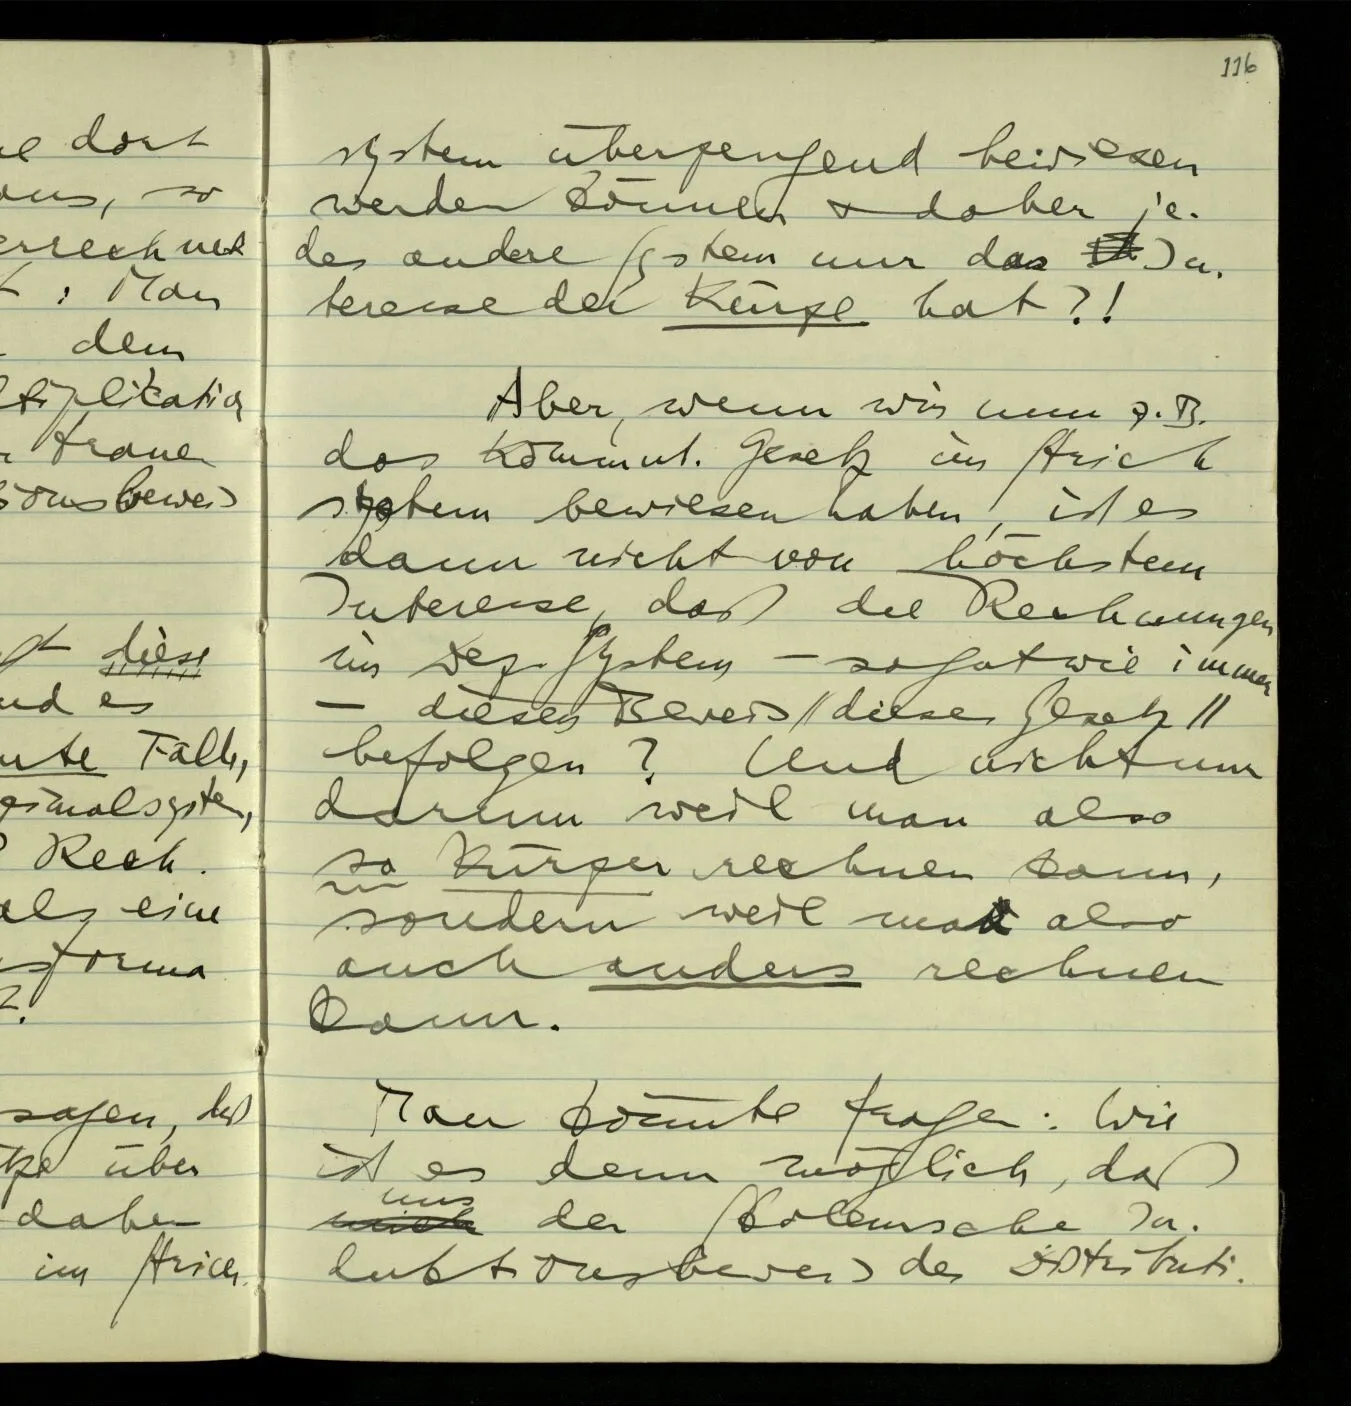 dort
so
errechnet
: Man
dem
ltiplikation
trauen
ionsbeweis
diese
nd es
mte Fälle,
ezimalsystem,
Rech.
als eine
nsforma
?.
sagen, daß
tze über
daher
im Strich-
116
system überzeugend bewiesen
werden können & daher je-
des andere System nur das In-
teresse der Kürze hat?!
Aber, wenn wir nun z.B.
das kommut. Gesetz im Strich
system bewiesen haben, ist es
dann nicht von höchstem
Interesse, daß die Rechnungen
im Dez. System – so gut wie immer
– diesen Beweis // dieses Gesetz //
befolgen? Und nicht nur
darum weil man also
so kürzer rechnen kann,
sondern weil man also
auch anders rechnen
kann.
Man könnte fragen: Wie
ist es denn möglich, daß
uns
mich der Skolemsche In-
duktionsbeweis des distributi-